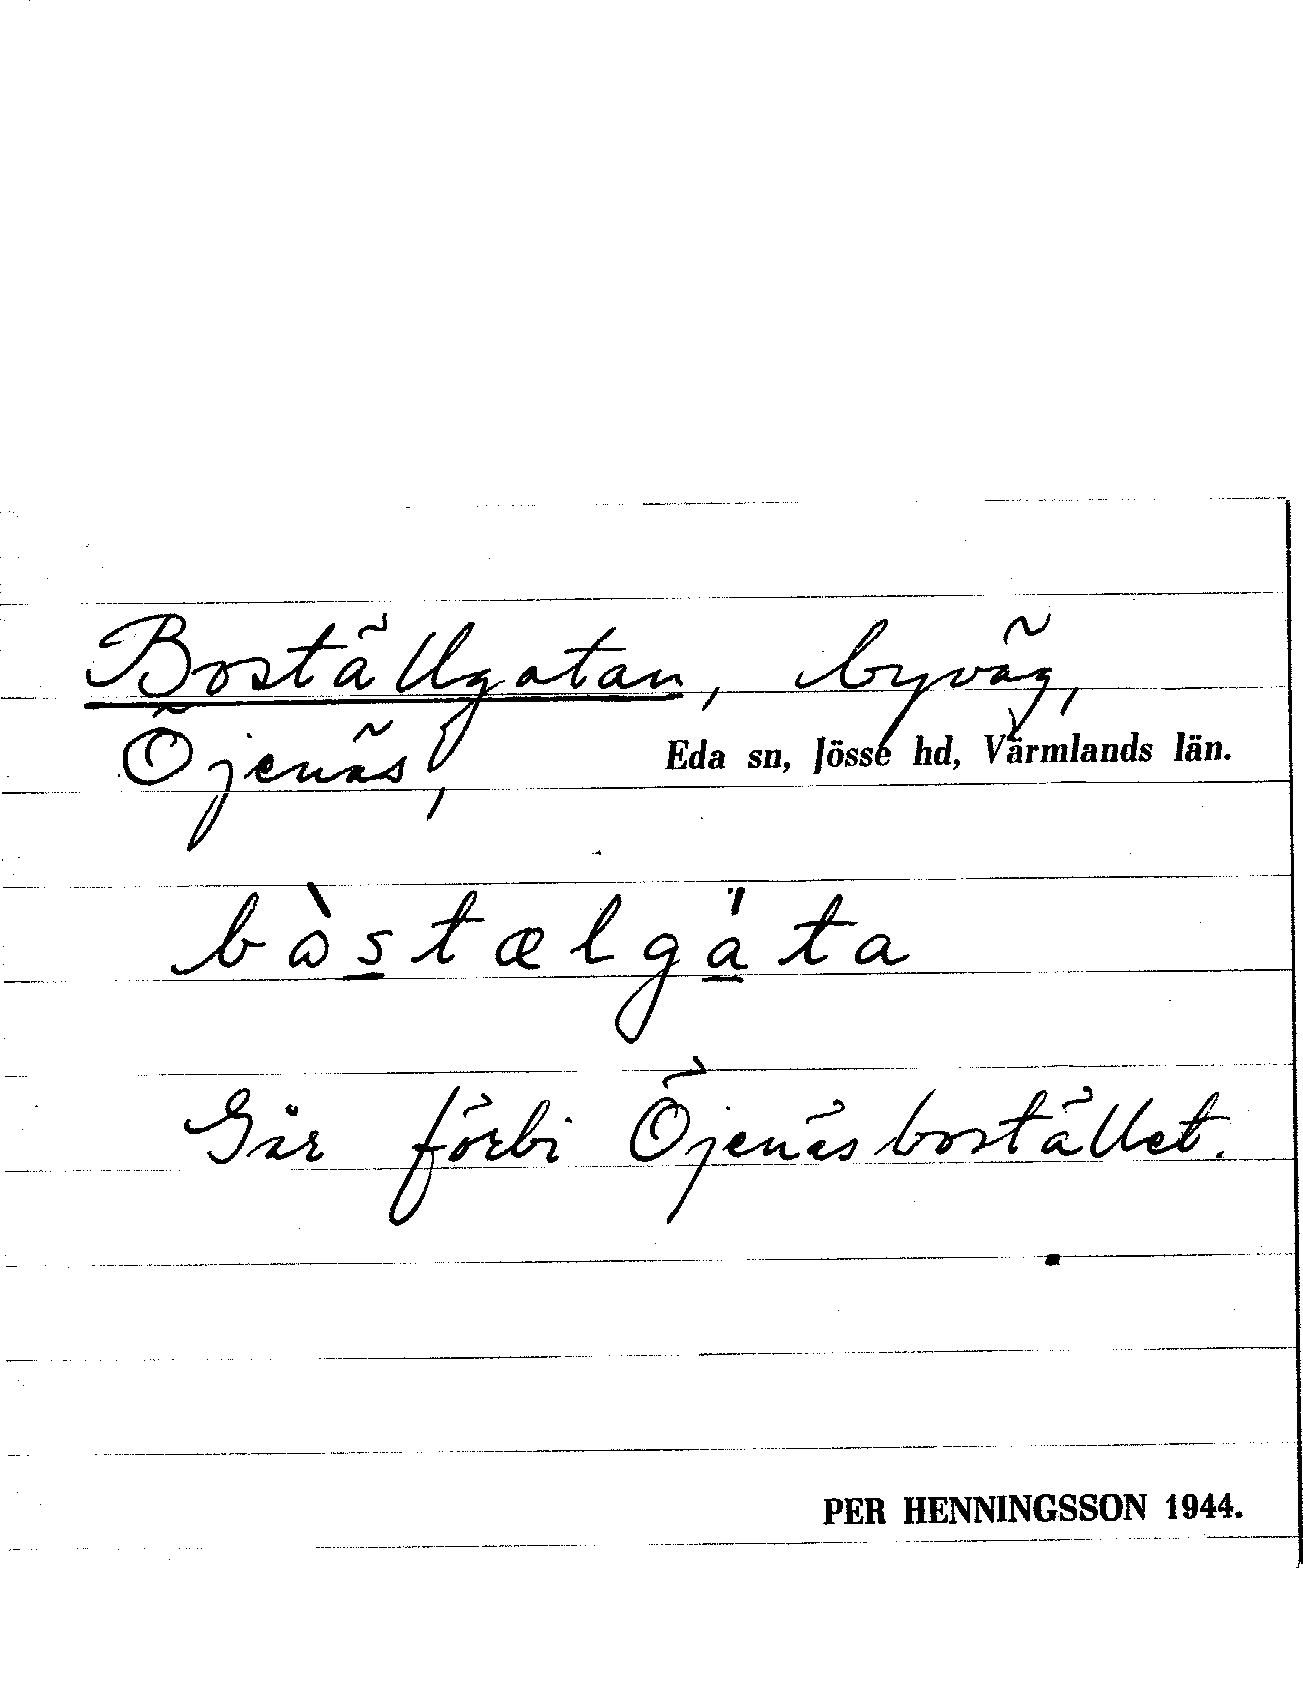 Boställgatan, byväg,
Öjenäs, Eda sn, Jösse hd, Värmlands län.
bòstælgata
Går förbi Öjenäsbostället.
PER HENNINGSSON 1944.